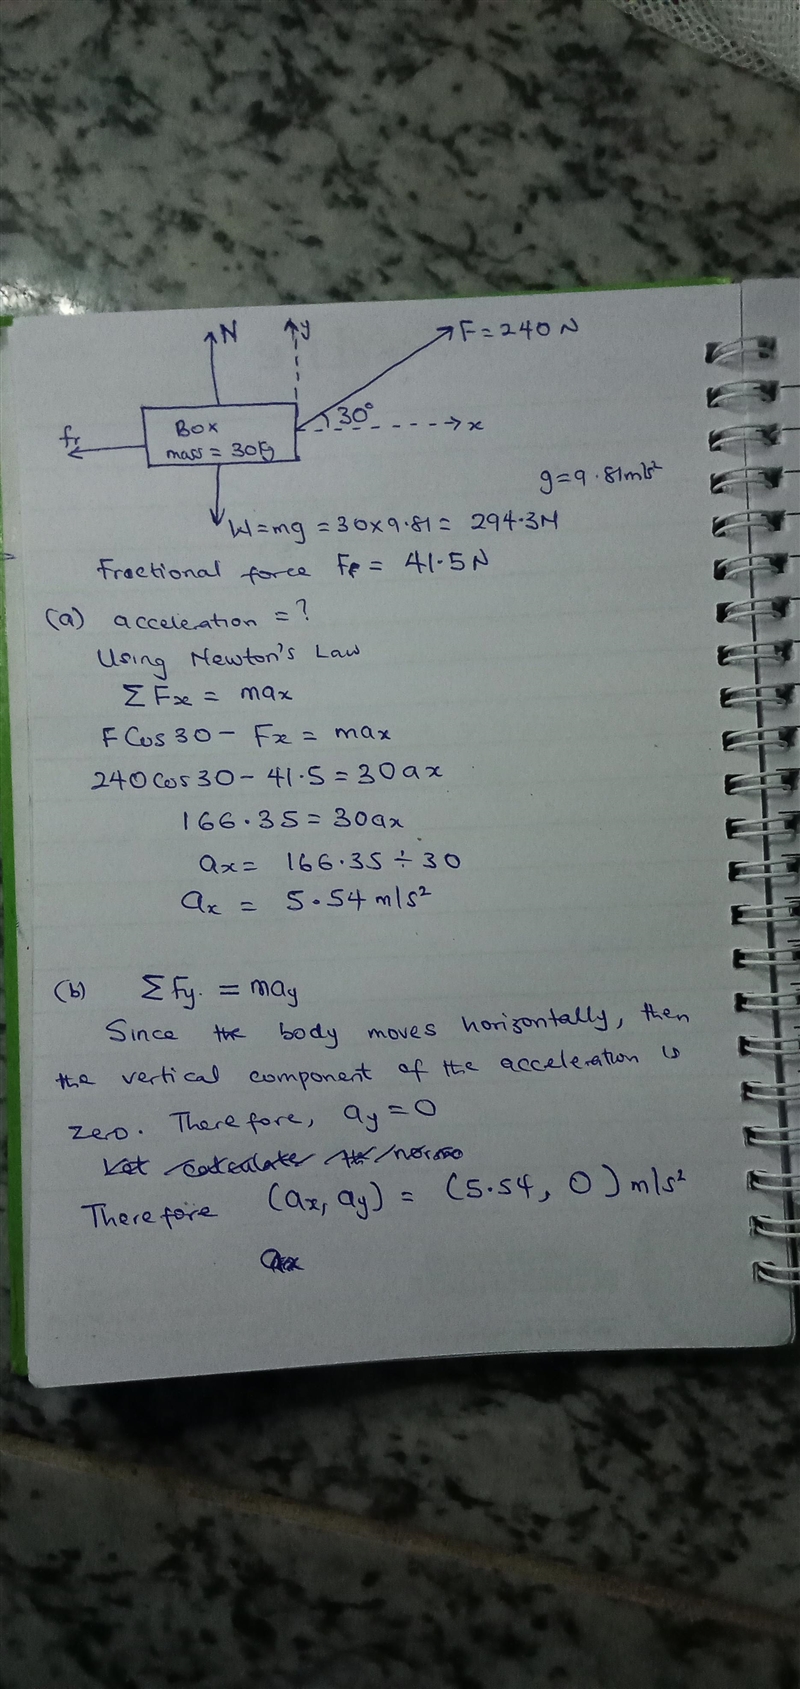 N
y
F = 240 N
30°
x
Box
mass = 30kg
fr
g = 9.81m/s²
W = mg = 30 x 9.81 = 294.3N
Fractional force Fr = 41.5N
(a) acceleration = ?
Using Newton's Law
Σ Fx = max
F Cos 30 - Fx = max
240 Cos 30 - 41.5 = 30ax
166.35 = 30ax
ax = 166.35 ÷ 30
ax = 5.54 m/s²
(b) Σ Fy. = may
Since the body moves horizontally, then
the vertical component of the acceleration is
zero. Therefore, ay = 0
Let calculate the
Therefore (ax, ay) = (5.54, 0) m/s²